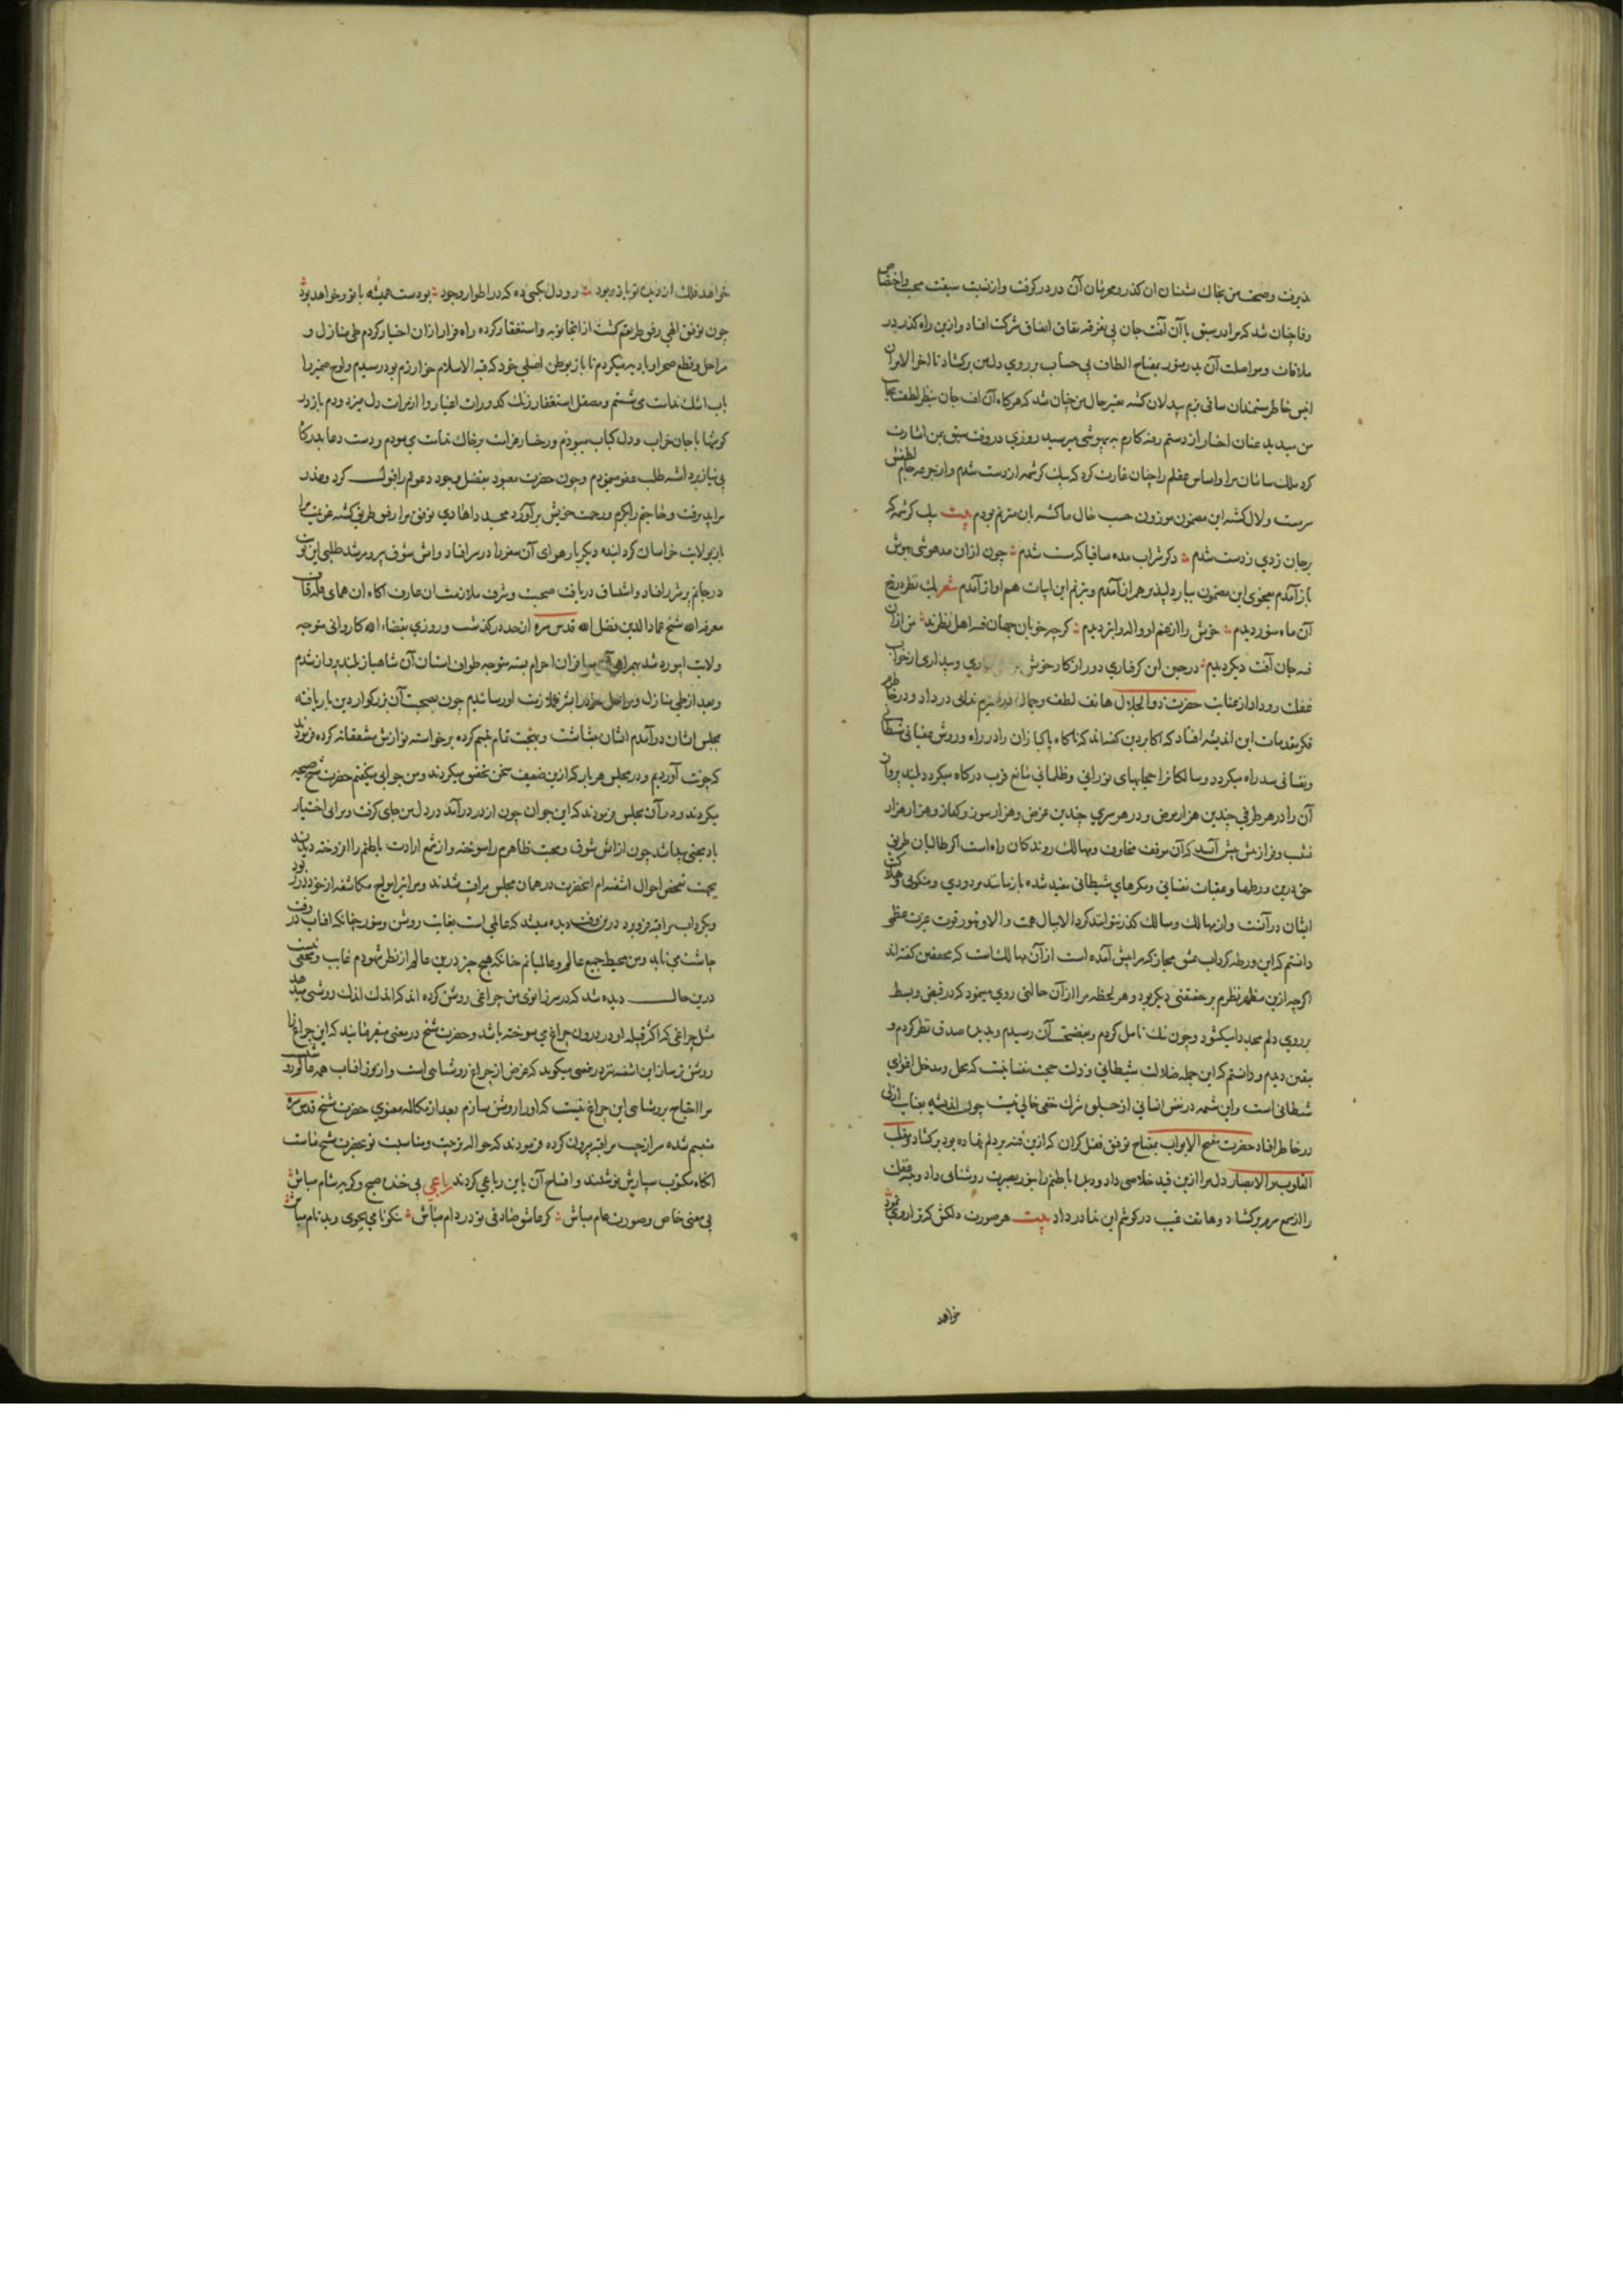 پذیرفت و صحبت من بخاك نشینان ان كذر و محرمان آن در در كرفت و از نسبت سبقت محبت و اختصاص
وفا چنان شد كه مرا در سبق با آن آفت جان بی تفرقه نفاق اتفاق شركت افتاد و ازین راه كذر در
ملاقات و مواصلت آن بدر منور بمفتاح الطاف بی حساب بر روی دل من بركشاد تا اخر الامر آن
انیس خاطر مستمندان ساقی بزم بیدلان كشته متغیر حال من چنان شد كه هركاه آن آفت جان بنظر لطف بجانب
من میدید عنان اختیار از دستم رفته كارم به بیهوشی میرسید روزی در وقت سبق بمن اشارت
كرد ملك سامان مرا و اساس عقلم را چنان غارت كرد كه بیك كرشمه از دست شدم و از جرعه جام لطفش
سرمست و لال كشته این مضمون موزون حسب حال ما كشته بان مترنم بودم بیت یك كرشمه كه
بر جان زدی ز دست شدم دكر شراب مده ساقیا كه مست شدم چون ازان مدهوشی بهوش
باز آمدم بفحوی این مضمون بیار دلپذیر همراز آمدم و بترنم این ابیات هم اواز آمدم شعر یك نظر در رخ
آن ماه منور دیدم خویش را از غم او واله و ابتر دیدم كرچه خوبان جهان فتنه اهل نظرند من ازان
فتنه جان آفت دیكر دیدم در حین این كرفتاری دور از كار خویش وبیداری از خواب
غفلت رو داد از عنایت حضرت ذو الجلال هاتف لطف و جمال ندایی در داد و در خاطرم
فكر مقدمات این اندیشه افتاد كه اكابر دین كفته اند كه ناكاه پاكبازان را در راه و روش عقباتی شیطانی
و نفسانی سد راه میكردد و سالكانرا حجابهای نورانی و ظلمانی مانع قرب دركاه میكردد
آن را در هر طرفی چندین هزار مرض و در هر سری چندین غرض و هزار سوز و كداز و هزار هزار
نشیب و فراز پیش پیش آید كه آن موقف مخاوف و مهالك روندكان راه است اكر طالبان طریق
حق درین ورطها و عقبات نفسانی و مكرهای شیطانی مقید شده بازمانند مردودی و منكوبی و هلاكت
ایشان در آنست و از مهالك و مسالك كذر نتوانند كرد الا ببال همت و الا و بزور قوت عزت عظمی
دانستم كه این ورطه كرداب عشق مجاز كه مرا پیش آمده است از آن مهالك است كه محققین كفته اند
اكرچه ازین مظهر نظرم بر حقیقتی دیكر بود و هر لحظه مرا از آن حالتی روی مینمود كه در قبض و بسط
بر روی دلم مجددا میكشود و چون نیك تامل كردم و بحقیقت آن رسیدم و بدیده صدق نظر كردم و
بیقین دیدم و دانستم كه این جمله ضلالت شیطانی و زلت محبت نفسانیست كه محل و مدخل اغوای
شیطانی است و این شمه در نفس انسانی از حیله و شرك خفی خالی نیست چون اندیشه بعنایت ازلی
در خاطر افتاد حضرت مفتح الابواب بمفتاح توفیق قفل كران كه ازین فتنه بر دلم نهاده بود بركشاد و مقلب
القلوب و الابصار دل مرا ازین قید خلاصی داد و دیده باطنم را بنور بصیرت روشنایی داد و غفلت
را از سمع سرم بركشاد و هاتف غیب در كوشم این ندا در داد بیت هر صورت دلكش كه ترا روی نمود
خواهد
خواهد فلك از دیده تو بازربود رو دل بكسی ده كه در اطوار وجود بودست همیشه با تو و خواهد بود
چون توفیق الهی رفیق طریقم كشت از انجا توبه و استغفار كرده راه فرار ازان اختیار كردم طی منازل و
مراحل و قطع صحرا و بادیه میكردم تا باز بوطن اصلی خود كه قبة الاسلام خوارزم بود رسیدم و لوح ضمیر را
باب اشك ندامت می شستم و بمصقل استغفار زنك كدورات اغیار را از مرات دل میزدودم باز در
كریها با جان خراب و دل كباب میبودم و رخسار غرامت بر خاك ندامت می سودم و دست دعا بدركاه
بی نیاز برداشته طلب عفو مینمودم و چون حضرت معبود بفضل و جود دعوتم را قبول كرد و عذر
مرا پذیرفت و حاجتم را بكرم و رحمت خویش برآورد مجددا هادی توفیق مرا رفیق طریق كشته عزیمت مرا
باز بولایت خراسان كردانیده دیكر بار هوای آن سفر مرا در سر افتاد و آتش شوق پیر و مرشد طلبی این نوبت
در جانم پرشرر افتاد و اشتیاق دریافت صحبت و شرف ملازمت ان عارف اكاه ان همای قله قاف
معرفة الله شیخ عماد الدین فضل الله قدس سره از حد در كذشت و روزی بقضاء الله كاروانی متوجه
ولایت ابیورد شد بهمراهی مسافران احرام بسته متوجه طواف استان آن شاهباز بلند پرواز شدم
و بعد از طی منازل و مراحل خود را بشرف ملازمت او رسانیدم چون بصحبت آن بزركوار دین بار یافته
مجلس ایشان درآمدم ایشان ببشاشت و بهجت تمام تبسم كرده برخواسته نوازش مشفقانه كرده فرمودند
كه خوب آوردیم و در مجلس هر بار كه ازین ضعیف سخن تحقیق میكردند و من جوابی میكفتم حضرت شیخ
میكردند و در آن مجلس فرمودند كه این جوان چون از در درآمد در دل من جای كرفت و مرا بی اختیار
باو محبتی پیدا شد چون از آتش شوق و محبت ظاهرم را سوخته و از شمع ارادت باطنم را افروخته دیدند
بجهت تفحص احوال اشفته ام انحضرت در همان مجلس مراقب شدند و مرا نیز امواج مكاشفه از خود در ربود
و بكرداب مراقبه فرو برد درین وقت دیده میشد كه عالمی است بغایت روشن و منور چنانكه افتاب در وقت
چاشت می تابد و من محیط جمیع عالم و عالمیانم چنانكه هیچ چیز درین عالم از نظر شهودم غایب و مخفی نیست
درین حال دیده شد كه در برابر من چراغی روشن كرده اند كه اندك اندك روشنی میدهد
مثل چراغی كه اكثر فتیله او در درون چراغ می سوخته باشد و حضرت شیخ در معنی میفرمایند كه این چراغ را
روشن تر ساز این اشفته نیز در نفس میكوید كه غرض از چراغ روشنایی است و از نور افتاب همه عالم روشنست
مرا احتیاج بروشنایی این چراغ نیست كه او را روشن سازم بعد از مكالمه معنوی حضرت شیخ قدس سره
متبسم شده سر از جیب مراقبه بیرون كرده فرمودند كه حواله تربیت و مناسبت تو بحضرت شیخ ماست
انكاه مكتوب سپارش نوشتند و افتتاح آن باین رباعی كردند رباعی بی خنده صبح و كریه شام مباش
بی معنی خاص و صورت عام مباش كر عاشق صادقی تو در دام مباش نیكونامی مجوی و بدنام مباش